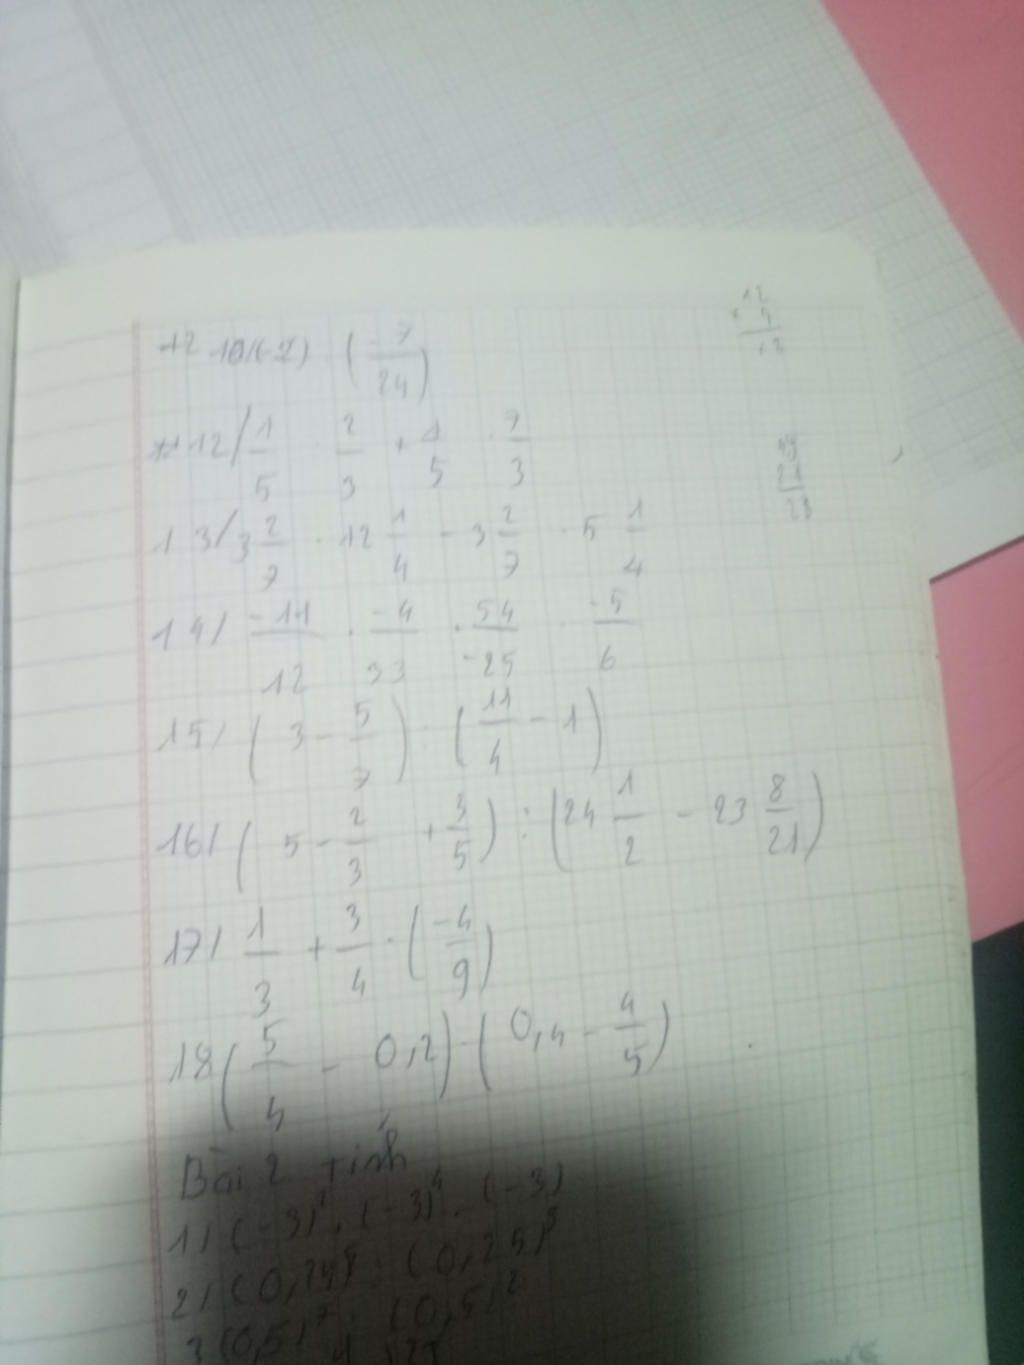 (-7/24)
12/ 1/5 · 2/3 + 1/5 · 7/3
13/ 3 2/7 · 12 1/4 - 3 2/7 · 5 1/4
14/ -11/12 · -4/33 · 54/-25 · -5/6
15/ (3 - 5/7) : (11/4 - 1)
16/ (5 - 2/3 + 3/5) : (24 1/2 - 23 8/21)
17/ 1/3 + 3/4 · (-4/9)
18 (5/4 - 0,2) · (0,4 - 4/5)
Bài 2 tính
1/ (-3)² · (-3)⁴ · (-3)
2/ : (0,25)
3 (0,5)⁷ : (0,5)²